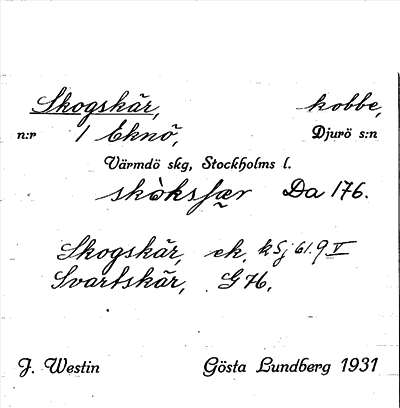 Skogskär, kobbe,
n:r 1 Eknö, Djurö s:n
Värmdö skg, Stockholms l.
skòksfær Da 176.
Skogskär, ek. k Sj. 61. 9 V
Svartskär, G 76,
J. Westin Gösta Lundberg 1931